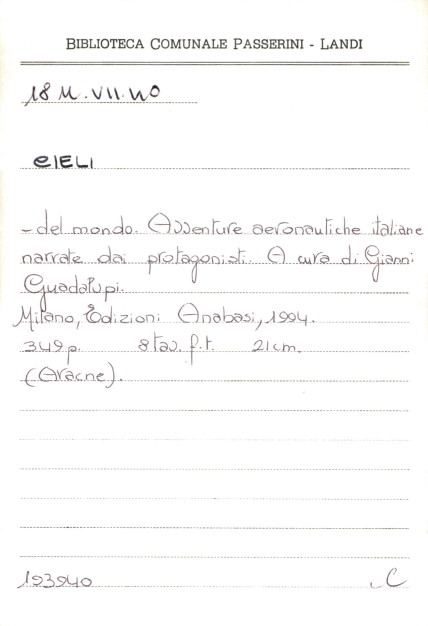 BIBLIOTECA COMUNALE PASSERINI - LANDI
18 M.VII.40
CIELI
- del mondo. Avventure aeronautiche italiane
narrate dai protagonisti. A cura di Gianni
Guadalupi.
Milano, Edizioni Anabasi, 1994.
349 p. 8 tav. f.t. 21 cm.
(Aracne).
193940
C